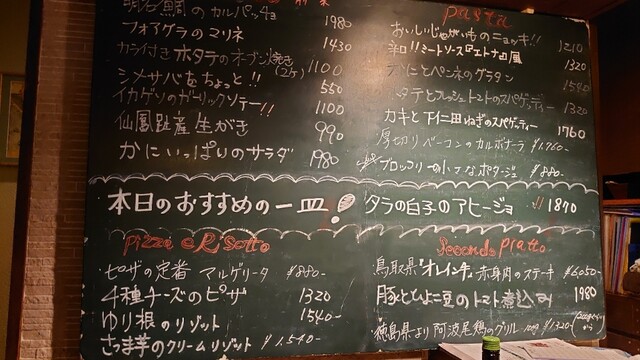 明石鯛のカルパッチョ
フォアグラのマリネ 1980
カラ付きホタテのオーブン焼き(2ケ) 1430
シメサバをちょっと!! 1100
イカゲソのガーリックソテー!! 550
1100
仙鳳趾産生がき 990
かにいっぱいのサラダ 1980
Pasta
おいしいじゃがいものニョッキ!! 1210
辛口!!ミートソース『エトナ』風 1320
かにとペンネのグラタン 1540
ホタテとフレッシュトマトのスパゲッティー 1320
カキと下仁田ねぎのスパゲッティー 1760
厚切りベーコンのカルボナーラ ¥1,760-
ブロッコリーの小さなポタージュ ¥880-
本日のおすすめの一皿! タラの白子のアヒージョ !! 1870
Pizza e Risotto
ピザの定番 マルゲリータ ¥880-
4種チーズのピザ 1320
ゆり根のリゾット 1540-
さつま芋のクリームリゾット ¥1,540-
Secondo Piatto
鳥取県『オレイン牛』赤身肉のステーキ ¥6,050-
豚とひよこ豆のトマト煮込み 1980
徳島県より阿波尾鶏のグリル 100g ¥1,320-